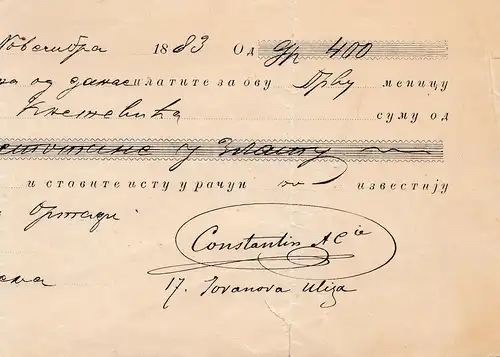 Новембра 1883 Од др 400
на од данас платите за ову Прву меницу
Кнежевића суму од
у злату
и ставите исту у рачун по известију
Constantin & Cie
17. Jovanova Uliza